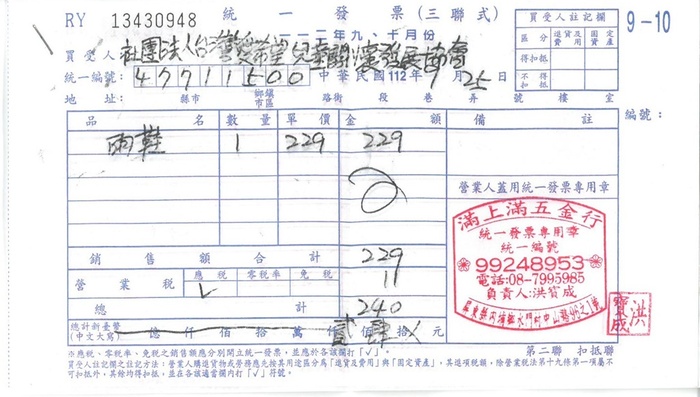 RY 13430948
統一發票(三聯式)
一一二年九、十月份
9-10
買受人註記欄
區分 退貨及費用 固定資產
得扣抵
不得扣抵
買受人: 社團法人台灣愛希望兒童關懷發展協會
統一編號: 47711500 中華民國112年9月25日
地址: 縣市 鄉鎮市區 路街 段 巷 弄 號 樓 室
編號:
品名 數量 單價 金額 備註
雨鞋 1 229 229
銷售額合計 229
營業稅 應稅 零稅率 免稅 11
√
總計 240
總計新臺幣(中文大寫) 億 仟 佰 拾 萬 仟 貳佰 肆拾 元
營業人蓋用統一發票專用章
滿上滿五金行
統一發票專用章
統一編號
99248953
電話:08-7995985
負責人:洪寳成
洪寳成
※應稅、零稅率、免稅之銷售額應分別開立統一發票,並應於各該欄打「√」。
第二聯 扣抵聯
買受人註記欄之註記方法:營業人購進貨物或勞務應先按其用途區分為「進貨及費用」與「固定資產」,其進項稅額,除營業稅法第十九條第一項屬不
可扣抵外,其餘均得扣抵,並在各該適當欄內打「√」符號。